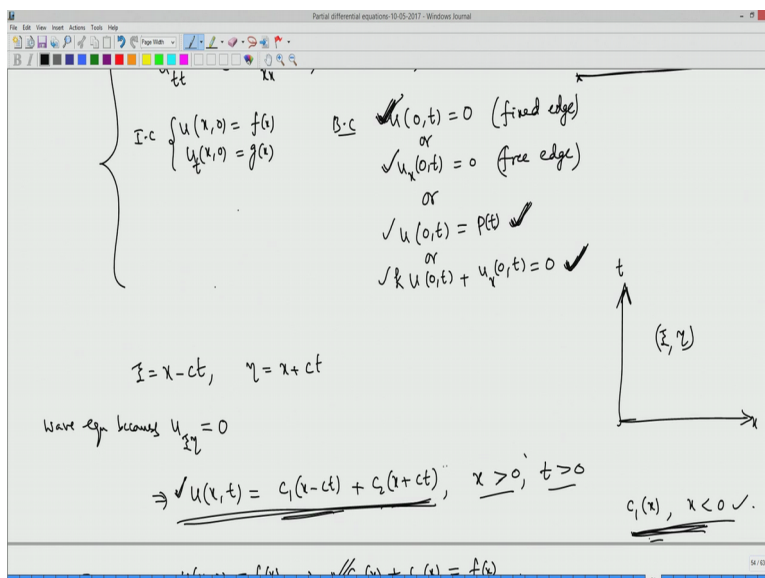 Partial differential equations-10-05-2017 - Windows Journal
File Edit View Insert Actions Tools Help
Page Width
B I
tt xx
x
I.C { u(x,0) = f(x)
u_t(x,0) = g(x)
B.C ✓ u(0,t) = 0 (fixed edge)
or
✓ u_x(0,t) = 0 (free edge)
or
✓ u(0,t) = p(t) ✓
or
✓ k u(0,t) + u_x(0,t) = 0 ✓
t
(ξ, η)
x
ξ = x-ct, η = x+ct
Wave eqn becomes u_ξη = 0
⇒ ✓ u(x,t) = c₁(x-ct) + c₂(x+ct); x > 0, t > 0
c₁(x), x < 0 ✓.
54 / 63